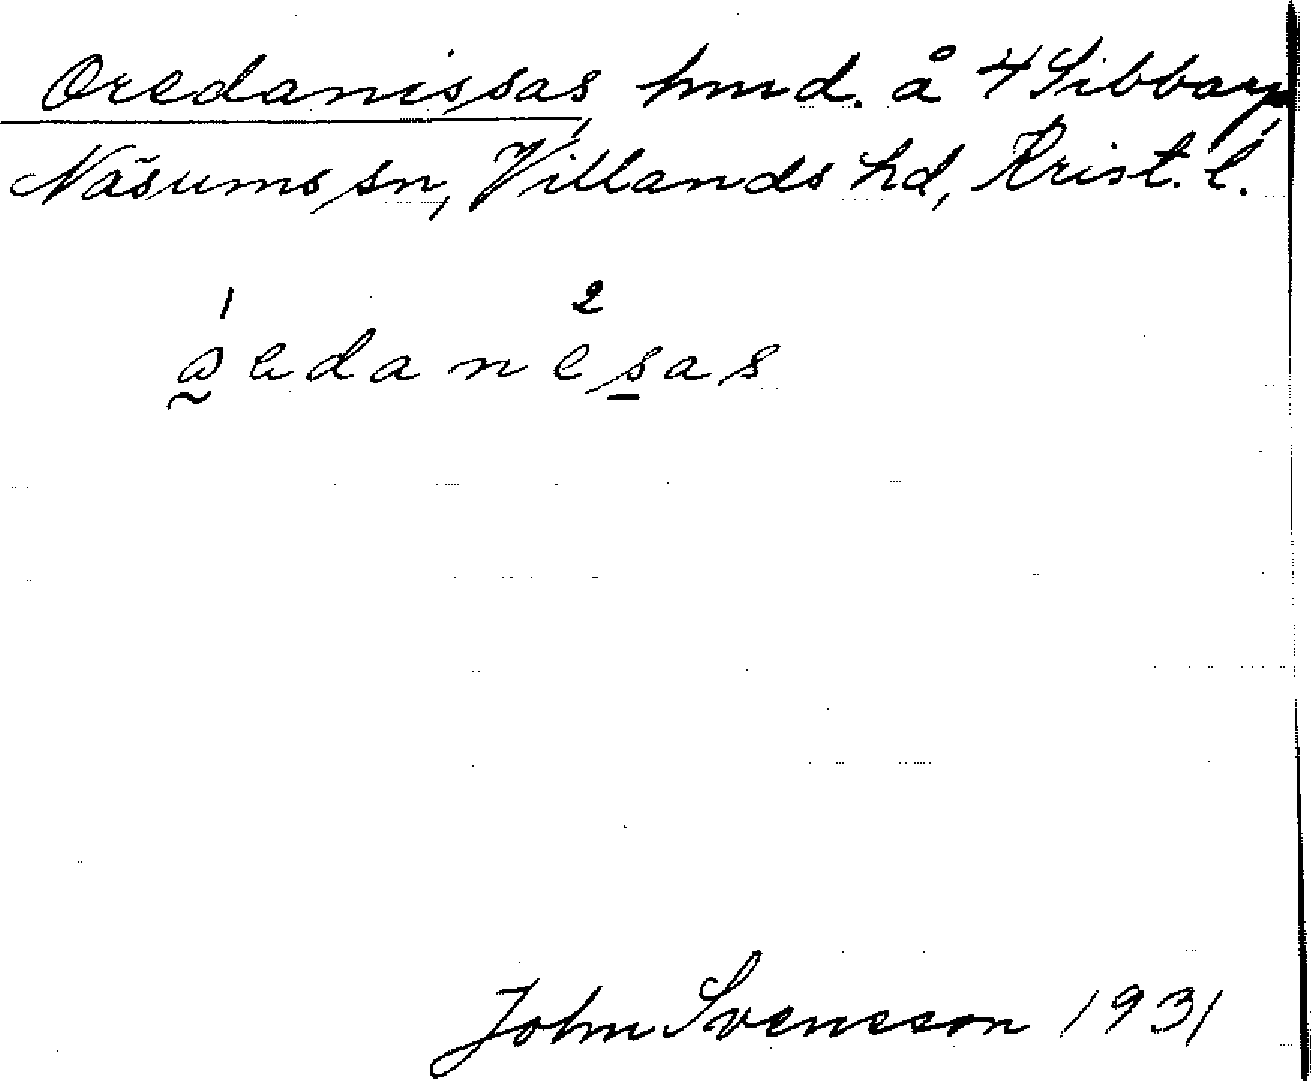 Oredanissas, hmd. å 4 Sibbarp,
Näsums sn, Villands hd, Krist. l.
1 2
John Svensson 1931